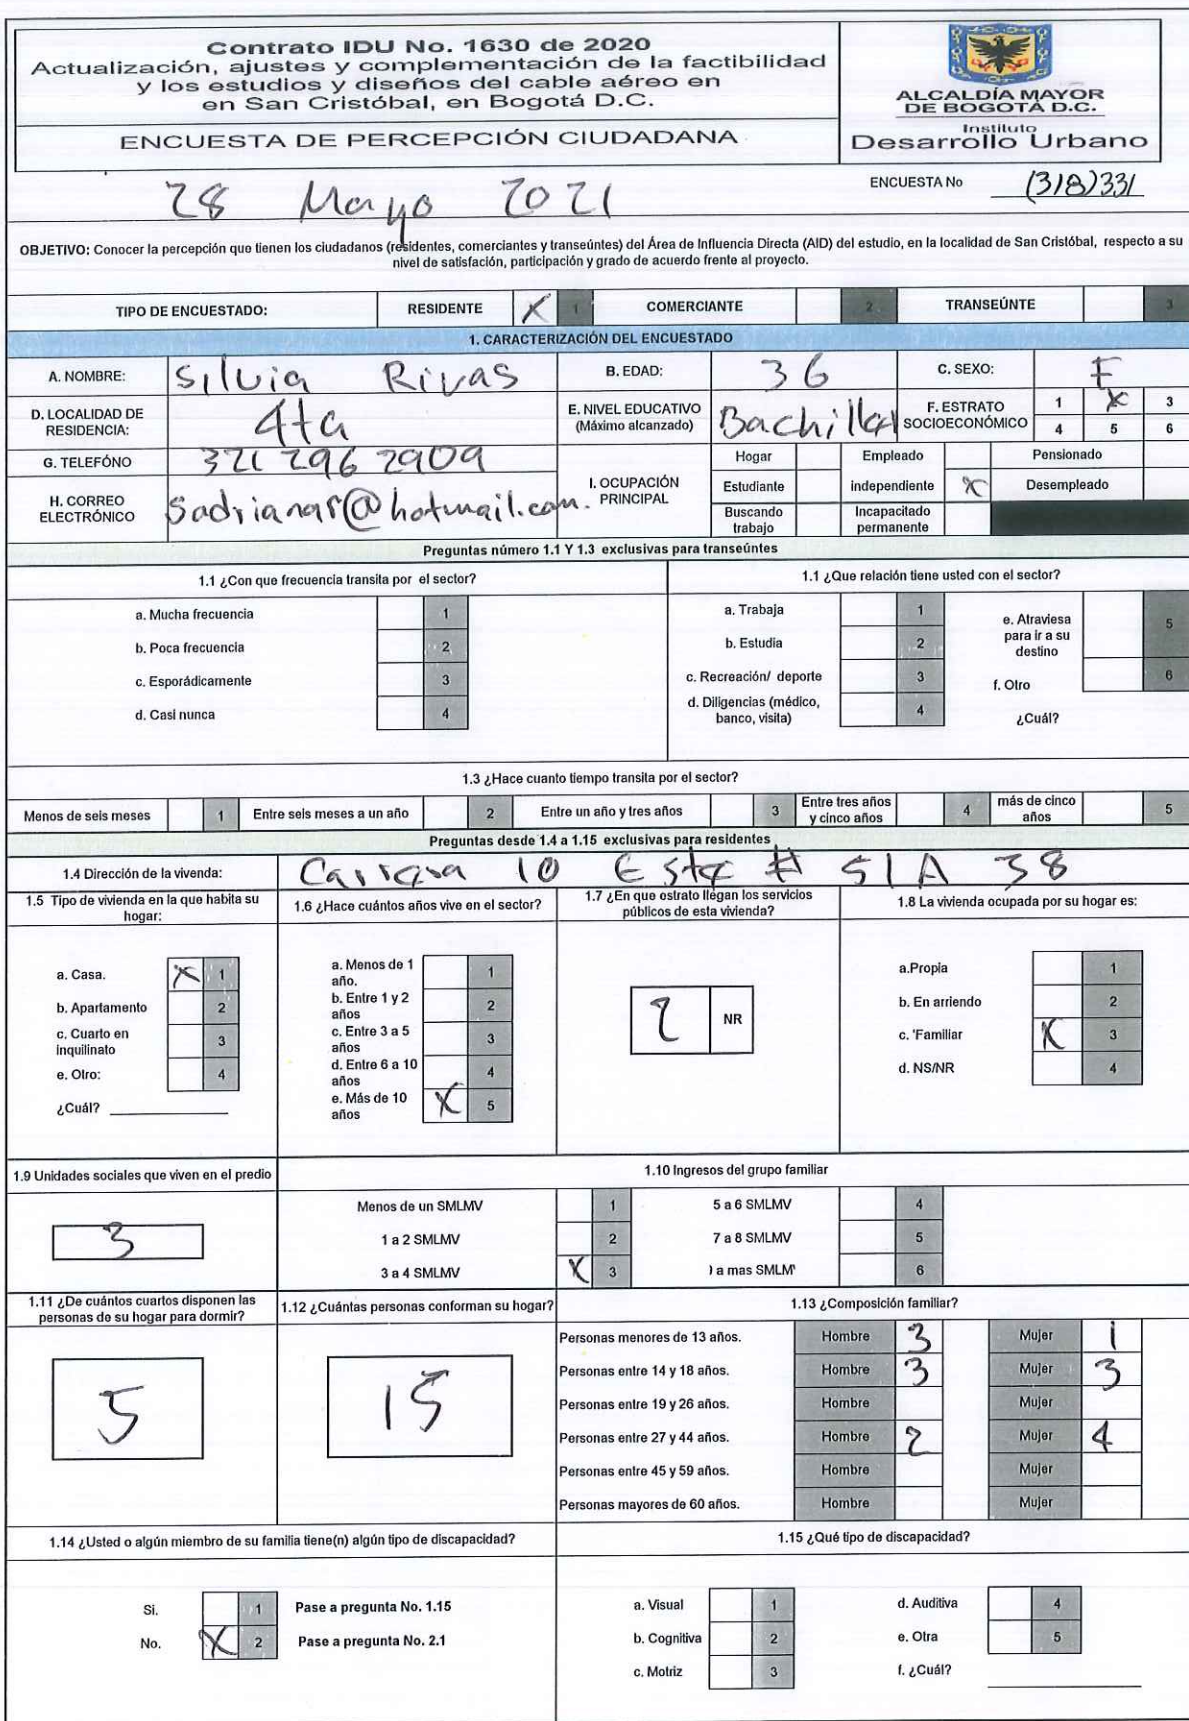 Contrato IDU No. 1630 de 2020
Actualización, ajustes y complementación de la factibilidad
y los estudios y diseños del cable aéreo en
en San Cristóbal, en Bogotá D.C.
ENCUESTA DE PERCEPCIÓN CIUDADANA
ALCALDÍA MAYOR
DE BOGOTÁ D.C.
Instituto
Desarrollo Urbano
28 Mayo 2021
ENCUESTA No (318)331
OBJETIVO: Conocer la percepción que tienen los ciudadanos (residentes, comerciantes y transeúntes) del Área de Influencia Directa (AID) del estudio, en la localidad de San Cristóbal, respecto a su
nivel de satisfacción, participación y grado de acuerdo frente al proyecto.
TIPO DE ENCUESTADO: RESIDENTE X 1 COMERCIANTE 2 TRANSEÚNTE 3
1. CARACTERIZACIÓN DEL ENCUESTADO
A. NOMBRE: Silvia Rivas B. EDAD: 36 C. SEXO: F
D. LOCALIDAD DE RESIDENCIA: 4ta
E. NIVEL EDUCATIVO (Máximo alcanzado) Bachiller
F. ESTRATO SOCIOECONÓMICO 1 X 3
4 5 6
G. TELEFÓNO 321 296 2909
H. CORREO ELECTRÓNICO Sadrianar@hotmail.com.
I. OCUPACIÓN PRINCIPAL
Hogar Empleado Pensionado
Estudiante independiente X Desempleado
Buscando trabajo Incapacitado permanente
Preguntas número 1.1 Y 1.3 exclusivas para transeúntes
1.1 ¿Con que frecuencia transita por el sector?
a. Mucha frecuencia 1
b. Poca frecuencia 2
c. Esporádicamente 3
d. Casi nunca 4
1.1 ¿Que relación tiene usted con el sector?
a. Trabaja 1
b. Estudia 2
c. Recreación/ deporte 3
d. Diligencias (médico, banco, visita) 4
e. Atraviesa para ir a su destino 5
f. Otro 6
¿Cuál?
1.3 ¿Hace cuanto tiempo transita por el sector?
Menos de seis meses 1 Entre seis meses a un año 2 Entre un año y tres años 3 Entre tres años y cinco años 4 más de cinco años 5
Preguntas desde 1.4 a 1.15 exclusivas para residentes
1.4 Dirección de la vivenda: Carrera 10 Este # 51A 38
1.5 Tipo de vivienda en la que habita su hogar:
a. Casa. X 1
b. Apartamento 2
c. Cuarto en inquilinato 3
e. Otro: 4
¿Cuál?
1.6 ¿Hace cuántos años vive en el sector?
a. Menos de 1 año. 1
b. Entre 1 y 2 años 2
c. Entre 3 a 5 años 3
d. Entre 6 a 10 años 4
e. Más de 10 años X 5
1.7 ¿En que estrato llegan los servicios públicos de esta vivienda?
2 NR
1.8 La vivienda ocupada por su hogar es:
a.Propia 1
b. En arriendo 2
c. 'Familiar X 3
d. NS/NR 4
1.9 Unidades sociales que viven en el predio
3
1.10 Ingresos del grupo familiar
Menos de un SMLMV 1 5 a 6 SMLMV 4
1 a 2 SMLMV 2 7 a 8 SMLMV 5
3 a 4 SMLMV X 3 a mas SMLM 6
1.11 ¿De cuántos cuartos disponen las personas de su hogar para dormir?
5
1.12 ¿Cuántas personas conforman su hogar?
15
1.13 ¿Composición familiar?
Personas menores de 13 años. Hombre 3 Mujer 1
Personas entre 14 y 18 años. Hombre 3 Mujer 3
Personas entre 19 y 26 años. Hombre Mujer
Personas entre 27 y 44 años. Hombre 2 Mujer 4
Personas entre 45 y 59 años. Hombre Mujer
Personas mayores de 60 años. Hombre Mujer
1.14 ¿Usted o algún miembro de su familia tiene(n) algún tipo de discapacidad?
Si. 1 Pase a pregunta No. 1.15
No. X 2 Pase a pregunta No. 2.1
1.15 ¿Qué tipo de discapacidad?
a. Visual 1 d. Auditiva 4
b. Cognitiva 2 e. Otra 5
c. Motriz 3 f. ¿Cuál?